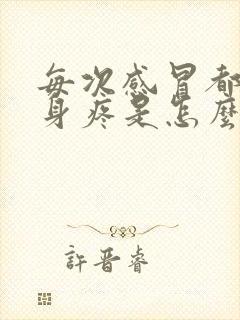 每次感冒都
身疼是怎麽
許晋睿